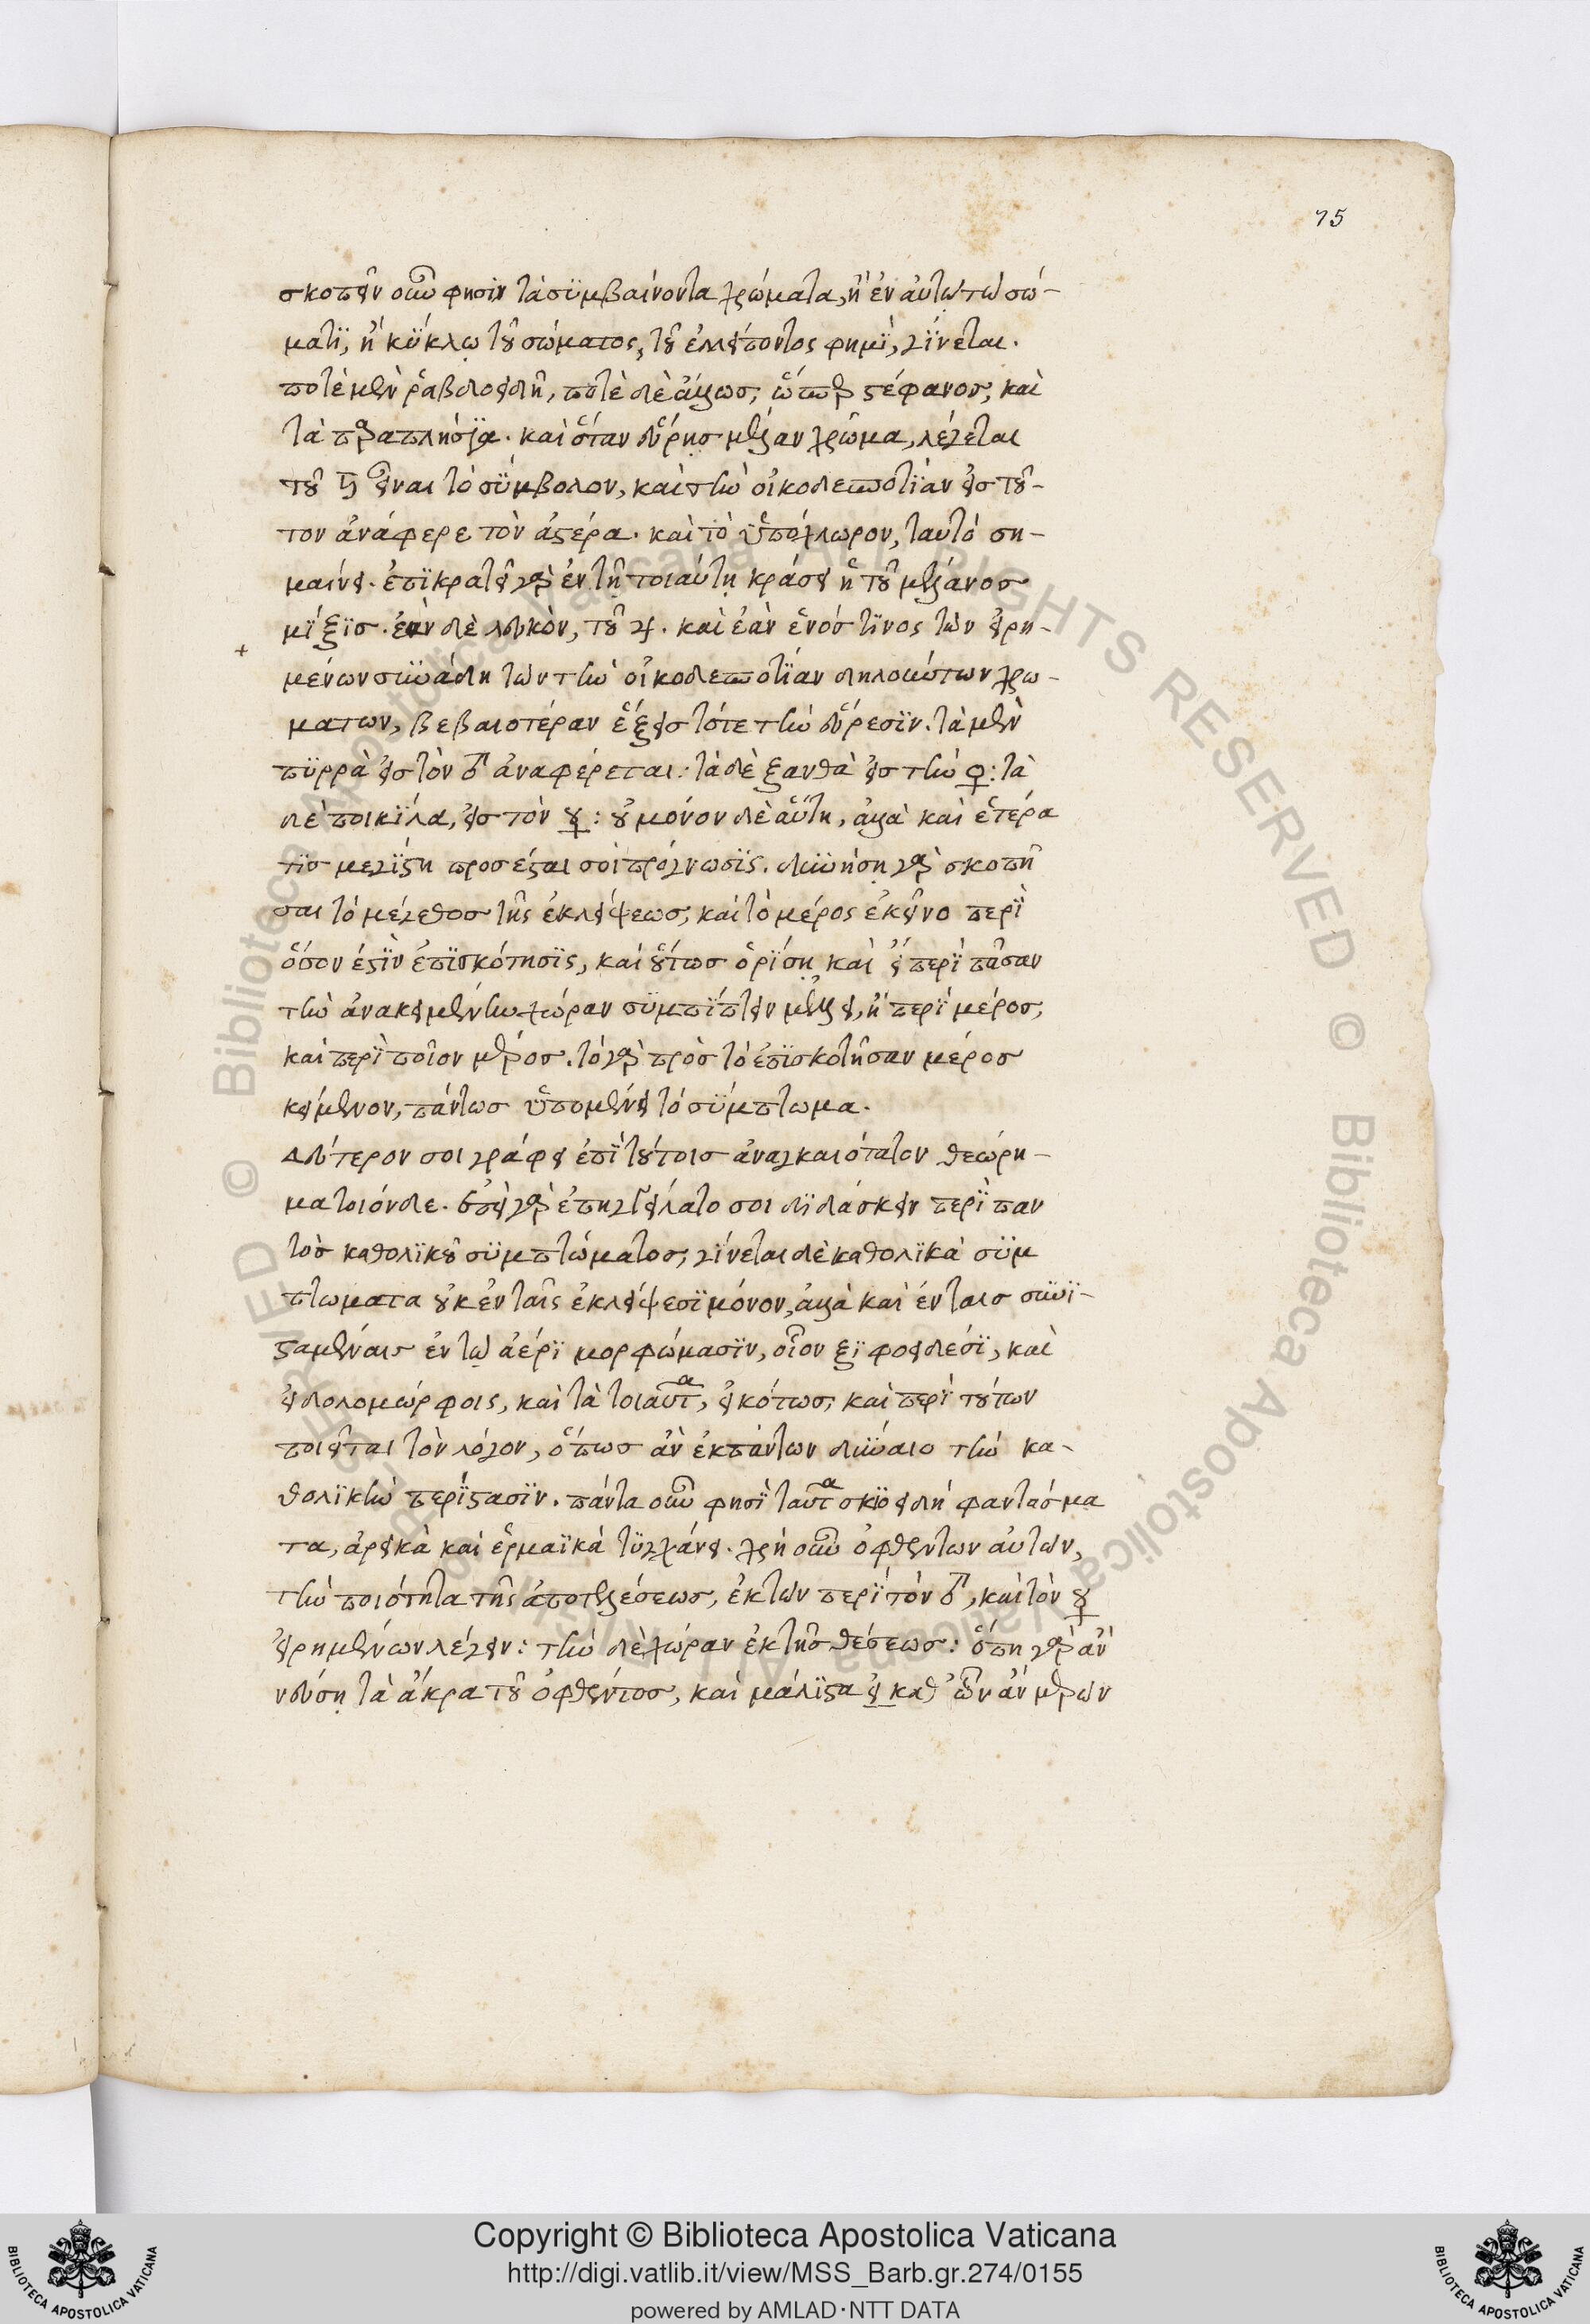 75
σκοπεῖν οὖν φησὶν τὰ συμβαίνοντα χρώματα, ἢ ἐν αὐτῷ τῷ σώ-
ματι, ἢ κύκλῳ τοῦ σώματος, τοῦ ἐλλείποντος φημὶ, γίνεται.
ποτὲ μὲν ῥαβδοειδῆ, ποτὲ δὲ ἄλλως, ὥσπερ στέφανος, καὶ
τὰ παραπλήσια. καὶ ὅταν εὕρῃς μέλαν χρῶμα, λέγεται
τοῦ ♄ εἶναι τὸ σύμβολον, καὶ τὴν οἰκοδεσποτίαν εἰς τοῦ-
τον ἀνάφερε τὸν ἀστέρα. καὶ τὸ ὑπόχλωρον, ταυτὸ ση-
μαίνει. ἐπικρατεῖ γὰρ ἐν τῇ τοιαύτῃ κράσει ἡ τοῦ μέλανος
μίξις. ἐὰν δὲ λευκὸν, τοῦ ♃. καὶ ἐὰν ἑνός τινος τῶν εἰρη-
+
μένων συνάδῃ τῶν τὴν οἰκοδεσποτίαν δηλούντων χρω-
μάτων, βεβαιοτέραν ἕξεις τότε τὴν εὕρεσιν. τὰ μὲν
πυρρὰ εἰς τὸν ♂ ἀναφέρεται: τὰ δὲ ξανθὰ εἰς τὴν ♀: τὰ
δὲ ποικίλα, εἰς τὸν ☿: οὐ μόνον δὲ αὕτη, ἀλλὰ καὶ ἑτέρα
τις μεγίστη προσέσται σοι πρόγνωσις. δυνήσῃ γὰρ σκοπῆ
σαι τὸ μέγεθος τῆς ἐκλείψεως, καὶ τὸ μέρος ἐκεῖνο περὶ
ὅσον ἐστὶν ἐπισκότησις, καὶ οὕτως ὁρίσῃ καὶ εἰ περὶ πᾶσαν
τὴν ἀνακειμένην χώραν συμπίπτειν μέλλει, ἢ περὶ μέρος,
καὶ περὶ ποῖον μέρος. τὸ γὰρ πρὸς τὸ ἐπισκοτῆσαν μέρος
κείμενον, πάντως ὑπομένει τὸ σύμπτωμα.
Δεύτερον σοι γράφει ἐπὶ τούτοις ἀναγκαιότατον θεώρη-
μα τοιόνδε. ἐπεὶ γὰρ ἐπηγγείλατο σοι διδάσκειν περὶ παν
τὸς καθολικοῦ συμπτώματος, γίνεται δὲ καθολικὰ συμ
πτώματα οὐκ ἐν ταῖς ἐκλείψεσι μόνον, ἀλλὰ καὶ ἐν ταῖς συνι-
σταμέναις ἐν τῷ ἀέρι μορφώμασιν, οἷον ξιφοειδέσι, καὶ
εἰδολομώρφοις, καὶ τὰ τοιαῦτα, εἰκότως, καὶ περὶ τούτων
ποιεῖται τὸν λόγον, ὅπως ἂν ἐκ πάντων δύναιο τὴν κα-
θολικὴν περίστασιν. πάντα οὖν φησὶ ταῦτα σκιοειδῆ φαντάσμα
τα, ἀρεικὰ καὶ ἑρμαϊκὰ τυγχάνει. χρὴ οὖν ὀφθέντων αὐτῶν,
τὴν ποιότητα τῆς ἀποτελέσεως, ἐκ τῶν περὶ τὸν ♂, καὶ τὸν ☿
εἰρημένων λέγειν: τὴν δὲ χώραν ἐκ τῆς θέσεως: ὅπη γὰρ ἂν
νεύσῃ τὰ ἄκρα τοῦ ὀφθέντος, καὶ μάλιστα εἰ καθ' ὧν ἂν μερῶν
Copyright © Biblioteca Apostolica Vaticana
http://digi.vatlib.it/view/MSS_Barb.gr.274/0155
powered by AMLAD·NTT DATA
BIBLIOTECA APOSTOLICA VATICANA
BIBLIOTECA APOSTOLICA VATICANA